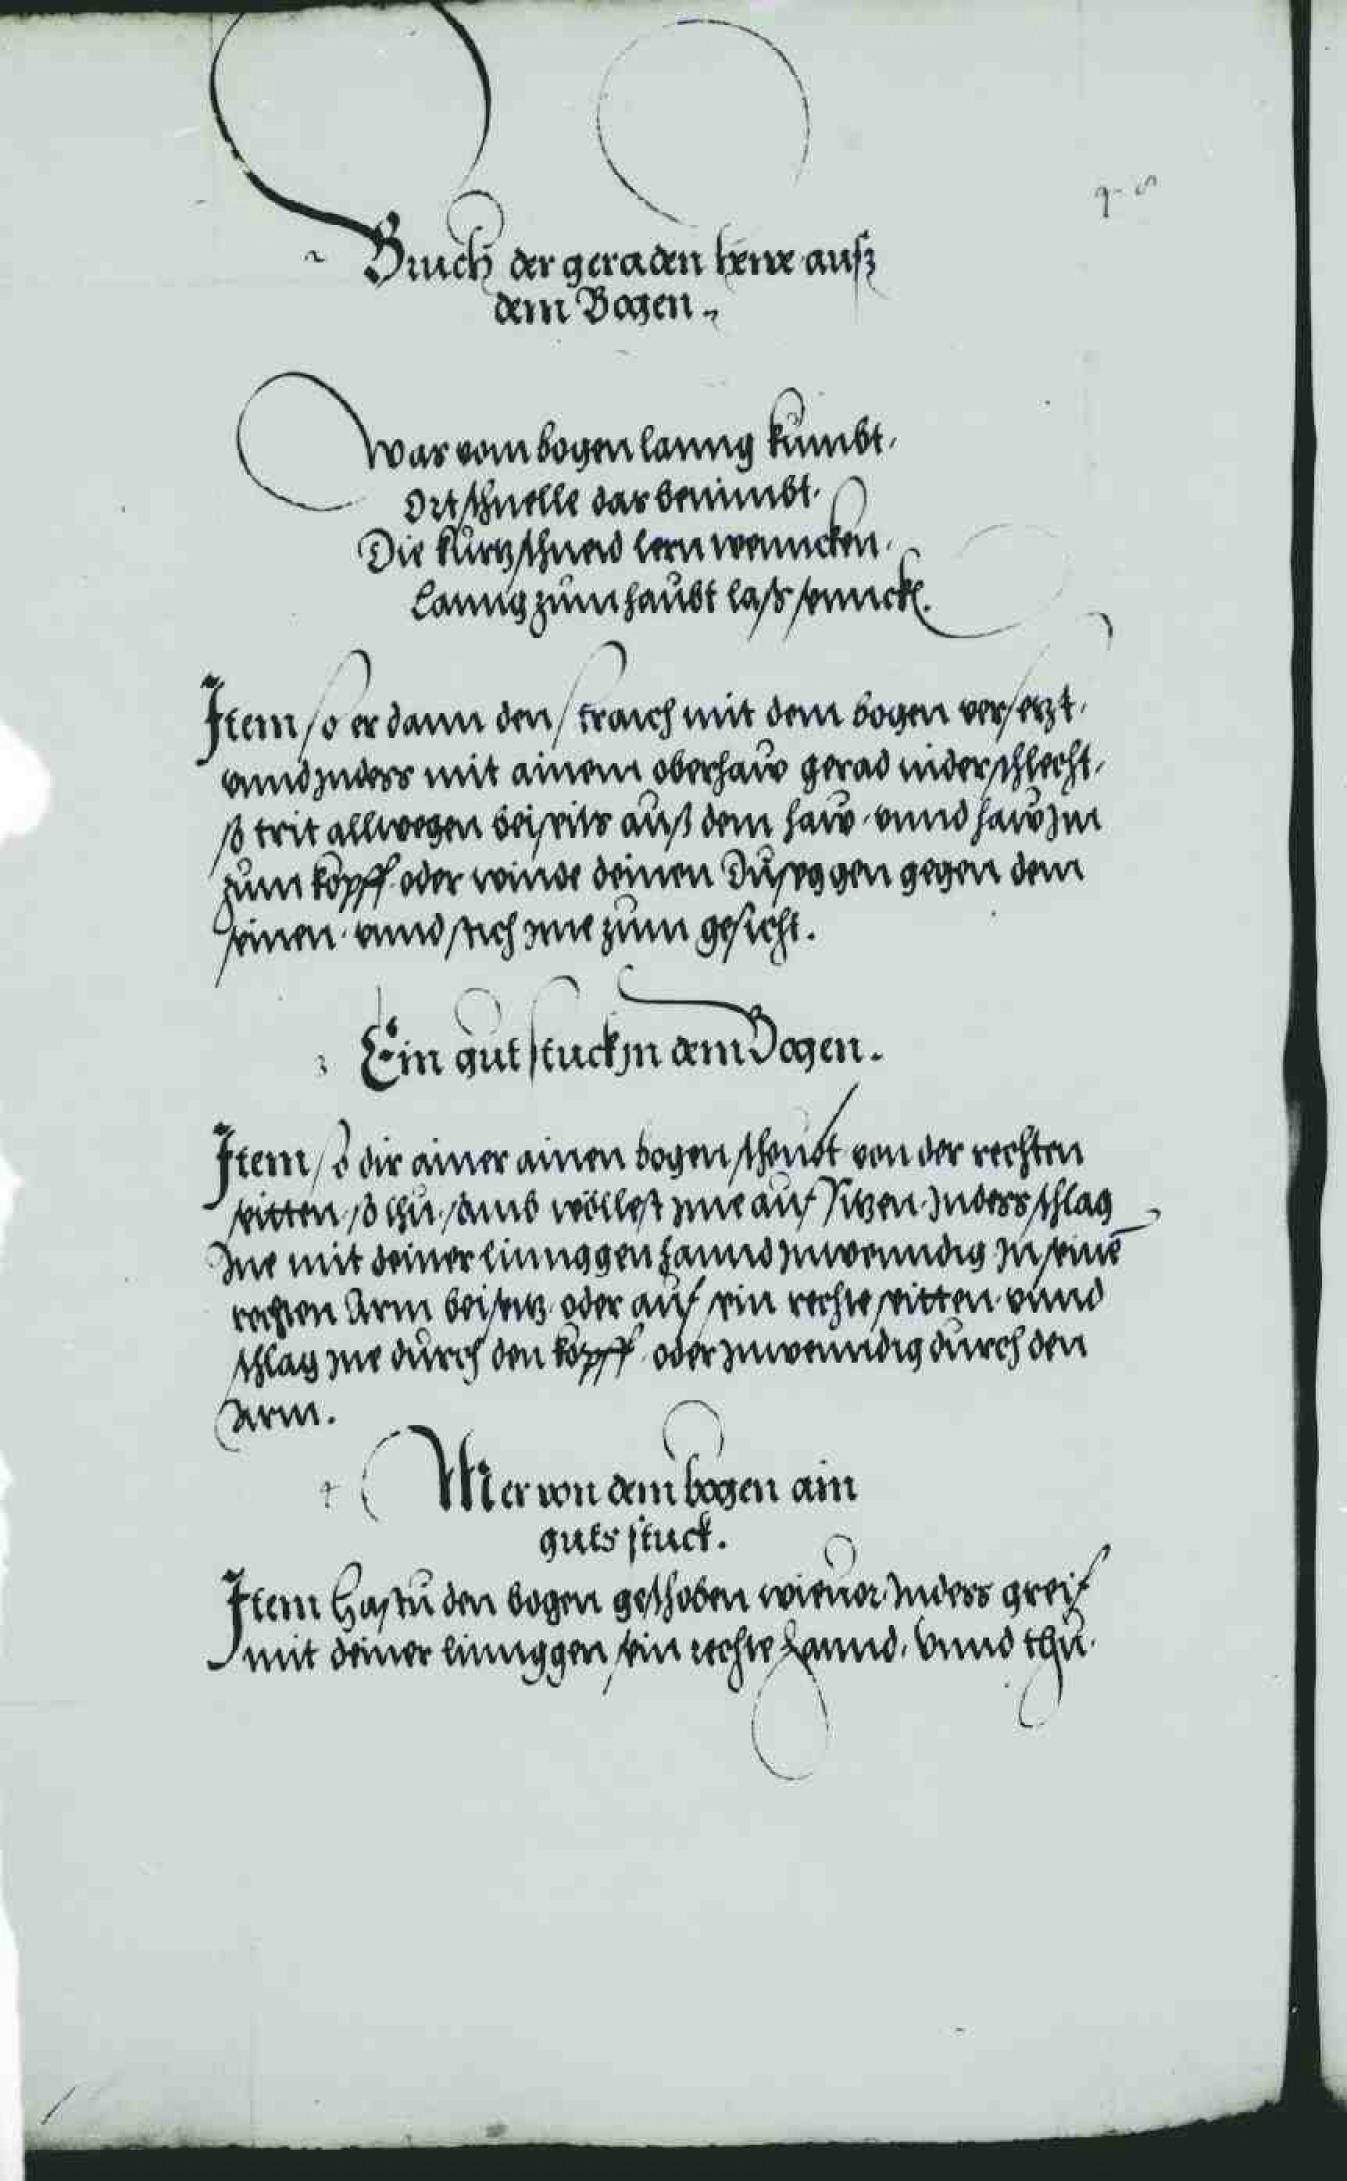 Bruch der geraden hewe auß
dem Bogen
Was vom bogen lanng kumbt,
Ortschnelle das benimbt,
Die kurtz schneid lern wenncken,
lanng zum haubt laß senncken.
Item so er dann den straich mit dem bogen versetzt,
unnd Inndess mit ainem oberhaw gerad niderschlecht,
so trit allwegen beiseits auß dem haw, unnd haw Im
zum kopff oder winde deinen Duseggen gegen dem
seinen, unnd stich Ime zum gesicht.
3 Ein gut stuck in dem Bogen.
Item so dir ainer ainen bogen scheubt von der rechten
seitten, so thu, samb wöllest Ime auf sitzen, Indess schlag
Ime mit deiner linnggen hannd Inwenndig In seinē
rechten Arm beiseitz, oder auf sein rechte seitten, unnd
schlag Ime durch den kopff, oder Inwenndig durch den
Arm.
4 Mer von dem bogen ain
guts stuck.
Item Hastu den bogen geschoben wie vor, Indess greif
mit deiner linnggen sein rechte Hannd, unnd thu,